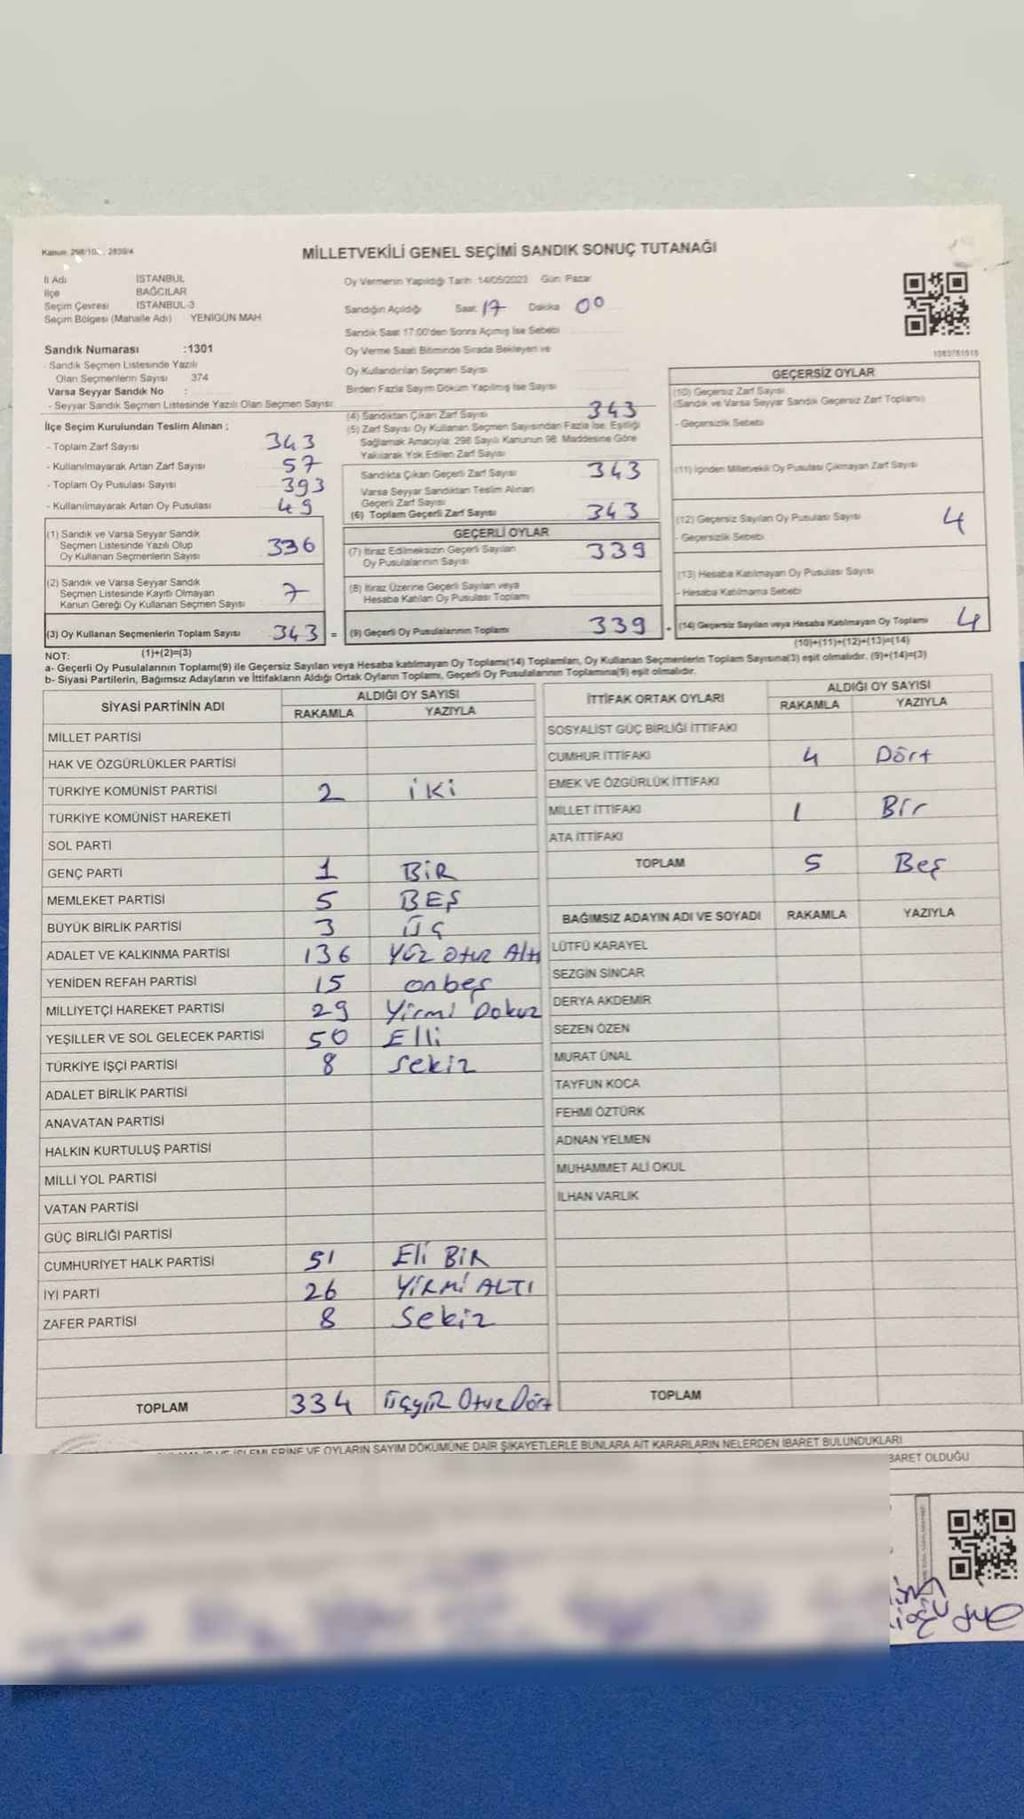 MİLLETVEKİLİ GENEL SEÇİMİ SANDIK SONUÇ TUTANAĞI
İl Adı İSTANBUL
İlçe BAĞCILAR
Seçim Çevresi İSTANBUL-3
Seçim Bölgesi (Mahalle Adı) YENİGÜN MAH
Oy Vermenin Yapıldığı Tarih :14/05/2023 Gün: Pazar
Sandığın Açıldığı Saat 17 Dakika 00
Sandık Saat 17:00'den Sonra Açımış İse Sebebi
Oy Verme Saati Bitiminde Sırada Bekleyen ve
Oy Kullandırılan Seçmen Sayısı
Birden Fazla Sayım Döküm Yapılmış İse Sayısı
Sandık Numarası :1301
- Sandık Seçmen Listesinde Yazılı
Olan Seçmenlerin Sayısı 374
Varsa Seyyar Sandık No :
- Seyyar Sandık Seçmen Listesinde Yazılı Olan Seçmen Sayısı:
İlçe Seçim Kurulundan Teslim Alınan ;
- Toplam Zarf Sayısı 343
- Kullanılmayarak Artan Zarf Sayısı 57
- Toplam Oy Pusulası Sayısı 393
- Kullanılmayarak Artan Oy Pusulası 49
(1) Sandık ve Varsa Seyyar Sandık
Seçmen Listesinde Yazılı Olup
Oy Kullanan Seçmenlerin Sayısı 336
(2) Sandık ve Varsa Seyyar Sandık
Seçmen Listesinde Kayıtlı Olmayan
Kanun Gereği Oy Kullanan Seçmen Sayısı 7
(3) Oy Kullanan Seçmenlerin Toplam Sayısı 343 =
(4) Sandıktan Çıkan Zarf Sayısı 343
(5) Zarf Sayısı Oy Kullanan Seçmen Sayısından Fazla İse, Eşitliği
Sağlamak Amacıyla; 298 Sayılı Kanunun 98. Maddesine Göre
Yakılarak Yok Edilen Zarf Sayısı
Sandıkta Çıkan Geçerli Zarf Sayısı 343
Varsa Seyyar Sandıktan Teslim Alınan
Geçerli Zarf Sayısı
(6) Toplam Geçerli Zarf Sayısı 343
GEÇERLİ OYLAR
(7) İtiraz Edilmeksizin Geçerli Sayılan
Oy Pusulalarının Sayısı 339
(8) İtiraz Üzerine Geçerli Sayılan veya
Hesaba Katılan Oy Pusulası Toplamı
(9) Geçerli Oy Pusulalarının Toplamı 339 +
1083781015
GEÇERSİZ OYLAR
(10) Geçersiz Zarf Sayısı
(Sandık ve Varsa Seyyar Sandık Geçersiz Zarf Toplamı)
- Geçersizlik Sebebi
(11) İçinden Milletvekili Oy Pusulası Çıkmayan Zarf Sayısı
(12) Geçersiz Sayılan Oy Pusulası Sayısı 4
- Geçersizlik Sebebi
(13) Hesaba Katılmayan Oy Pusulası Sayısı
- Hesaba Katılmama Sebebi
(14) Geçersiz Sayılan veya Hesaba Katılmayan Oy Toplamı 4
NOT: (1)+(2)=(3) (10)+(11)+(12)+(13)=(14)
a- Geçerli Oy Pusulalarının Toplamı(9) ile Geçersiz Sayılan veya Hesaba katılmayan Oy Toplamı(14) Toplamları, Oy Kullanan Seçmenlerin Toplam Sayısına(3) eşit olmalıdır. (9)+(14)=(3)
b- Siyasi Partilerin, Bağımsız Adayların ve İttifakların Aldığı Ortak Oyların Toplamı, Geçerli Oy Pusulalarının Toplamına(9) eşit olmalıdır.
SİYASİ PARTİNİN ADI ALDIĞI OY SAYISI
RAKAMLA YAZIYLA
MİLLET PARTİSİ
HAK VE ÖZGÜRLÜKLER PARTİSİ
TÜRKİYE KOMÜNİST PARTİSİ 2 iKi
TÜRKİYE KOMÜNİST HAREKETİ
SOL PARTİ
GENÇ PARTİ 1 BiR
MEMLEKET PARTİSİ 5 BEŞ
BÜYÜK BİRLİK PARTİSİ 3 üç
ADALET VE KALKINMA PARTİSİ 136 Yüz Otuz Altı
YENİDEN REFAH PARTİSİ 15 onbeş
MİLLİYETÇİ HAREKET PARTİSİ 29 Yirmi Dokuz
YEŞİLLER VE SOL GELECEK PARTİSİ 50 Elli
TÜRKİYE İŞÇİ PARTİSİ 8 Sekiz
ADALET BİRLİK PARTİSİ
ANAVATAN PARTİSİ
HALKIN KURTULUŞ PARTİSİ
MİLLİ YOL PARTİSİ
VATAN PARTİSİ
GÜÇ BİRLİĞİ PARTİSİ
CUMHURİYET HALK PARTİSİ 51 Eli BiR
İYİ PARTİ 26 YiRMi ALTI
ZAFER PARTİSİ 8 Sekiz
TOPLAM 334 Üçyüz Otuz Dört
İTTİFAK ORTAK OYLARI ALDIĞI OY SAYISI
RAKAMLA YAZIYLA
SOSYALİST GÜÇ BİRLİĞİ İTTİFAKI
CUMHUR İTTİFAKI 4 Dört
EMEK VE ÖZGÜRLÜK İTTİFAKI
MİLLET İTTİFAKI 1 Bir
ATA İTTİFAKI
TOPLAM 5 Beş
BAĞIMSIZ ADAYIN ADI VE SOYADI RAKAMLA YAZIYLA
LÜTFÜ KARAYEL
SEZGİN SİNCAR
DERYA AKDEMİR
SEZEN ÖZEN
MURAT ÜNAL
TAYFUN KOCA
FEHMİ ÖZTÜRK
ADNAN YELMEN
MUHAMMET ALİ OKUL
İLHAN VARLIK
TOPLAM
VE OYLARIN SAYIM DÖKÜMÜNE DAİR ŞİKAYETLERLE BUNLARA AİT KARARLARIN NELERDEN İBARET BULUNDUKLARI
OLDUĞU